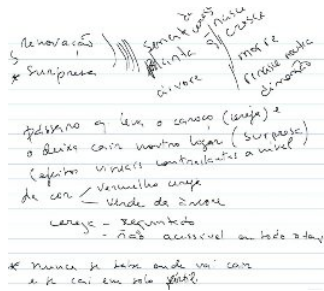 renovação
* surpresa
semente
planta
árvore
nasce
cresce
morre
renasce noutra
dimensão
pássaro q leva o caroço (cereja) e
o deixa cair noutro lugar (surpresa)
(efeitos visuais contrastantes a nível
da cor vermelho cereja
verde da árvore
cereja - requintado
- não acessível em todo o
* nunca se sabe onde vai cair
e se cai em solo fértil.